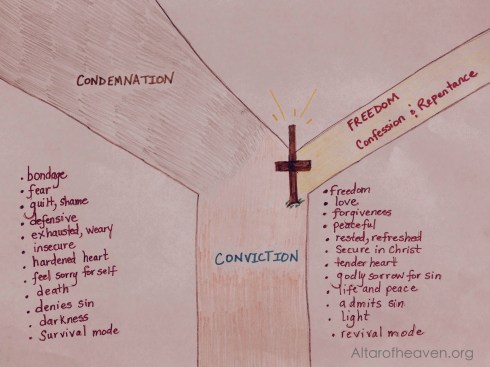 CONDEMNATION
FREEDOM
Confession & Repentance
CONVICTION
. bondage
. fear
. guilt, shame
. defensive
. exhausted, weary
. insecure
. hardened heart
. feel sorry for self
. death
. denies sin
. darkness
. Survival mode
. freedom
. love
. forgiveness
. peaceful
. rested, refreshed
. Secure in Christ
. tender heart
. godly sorrow for sin
. life and peace
. admits sin
. light
. revival mode
Altarofheaven.org